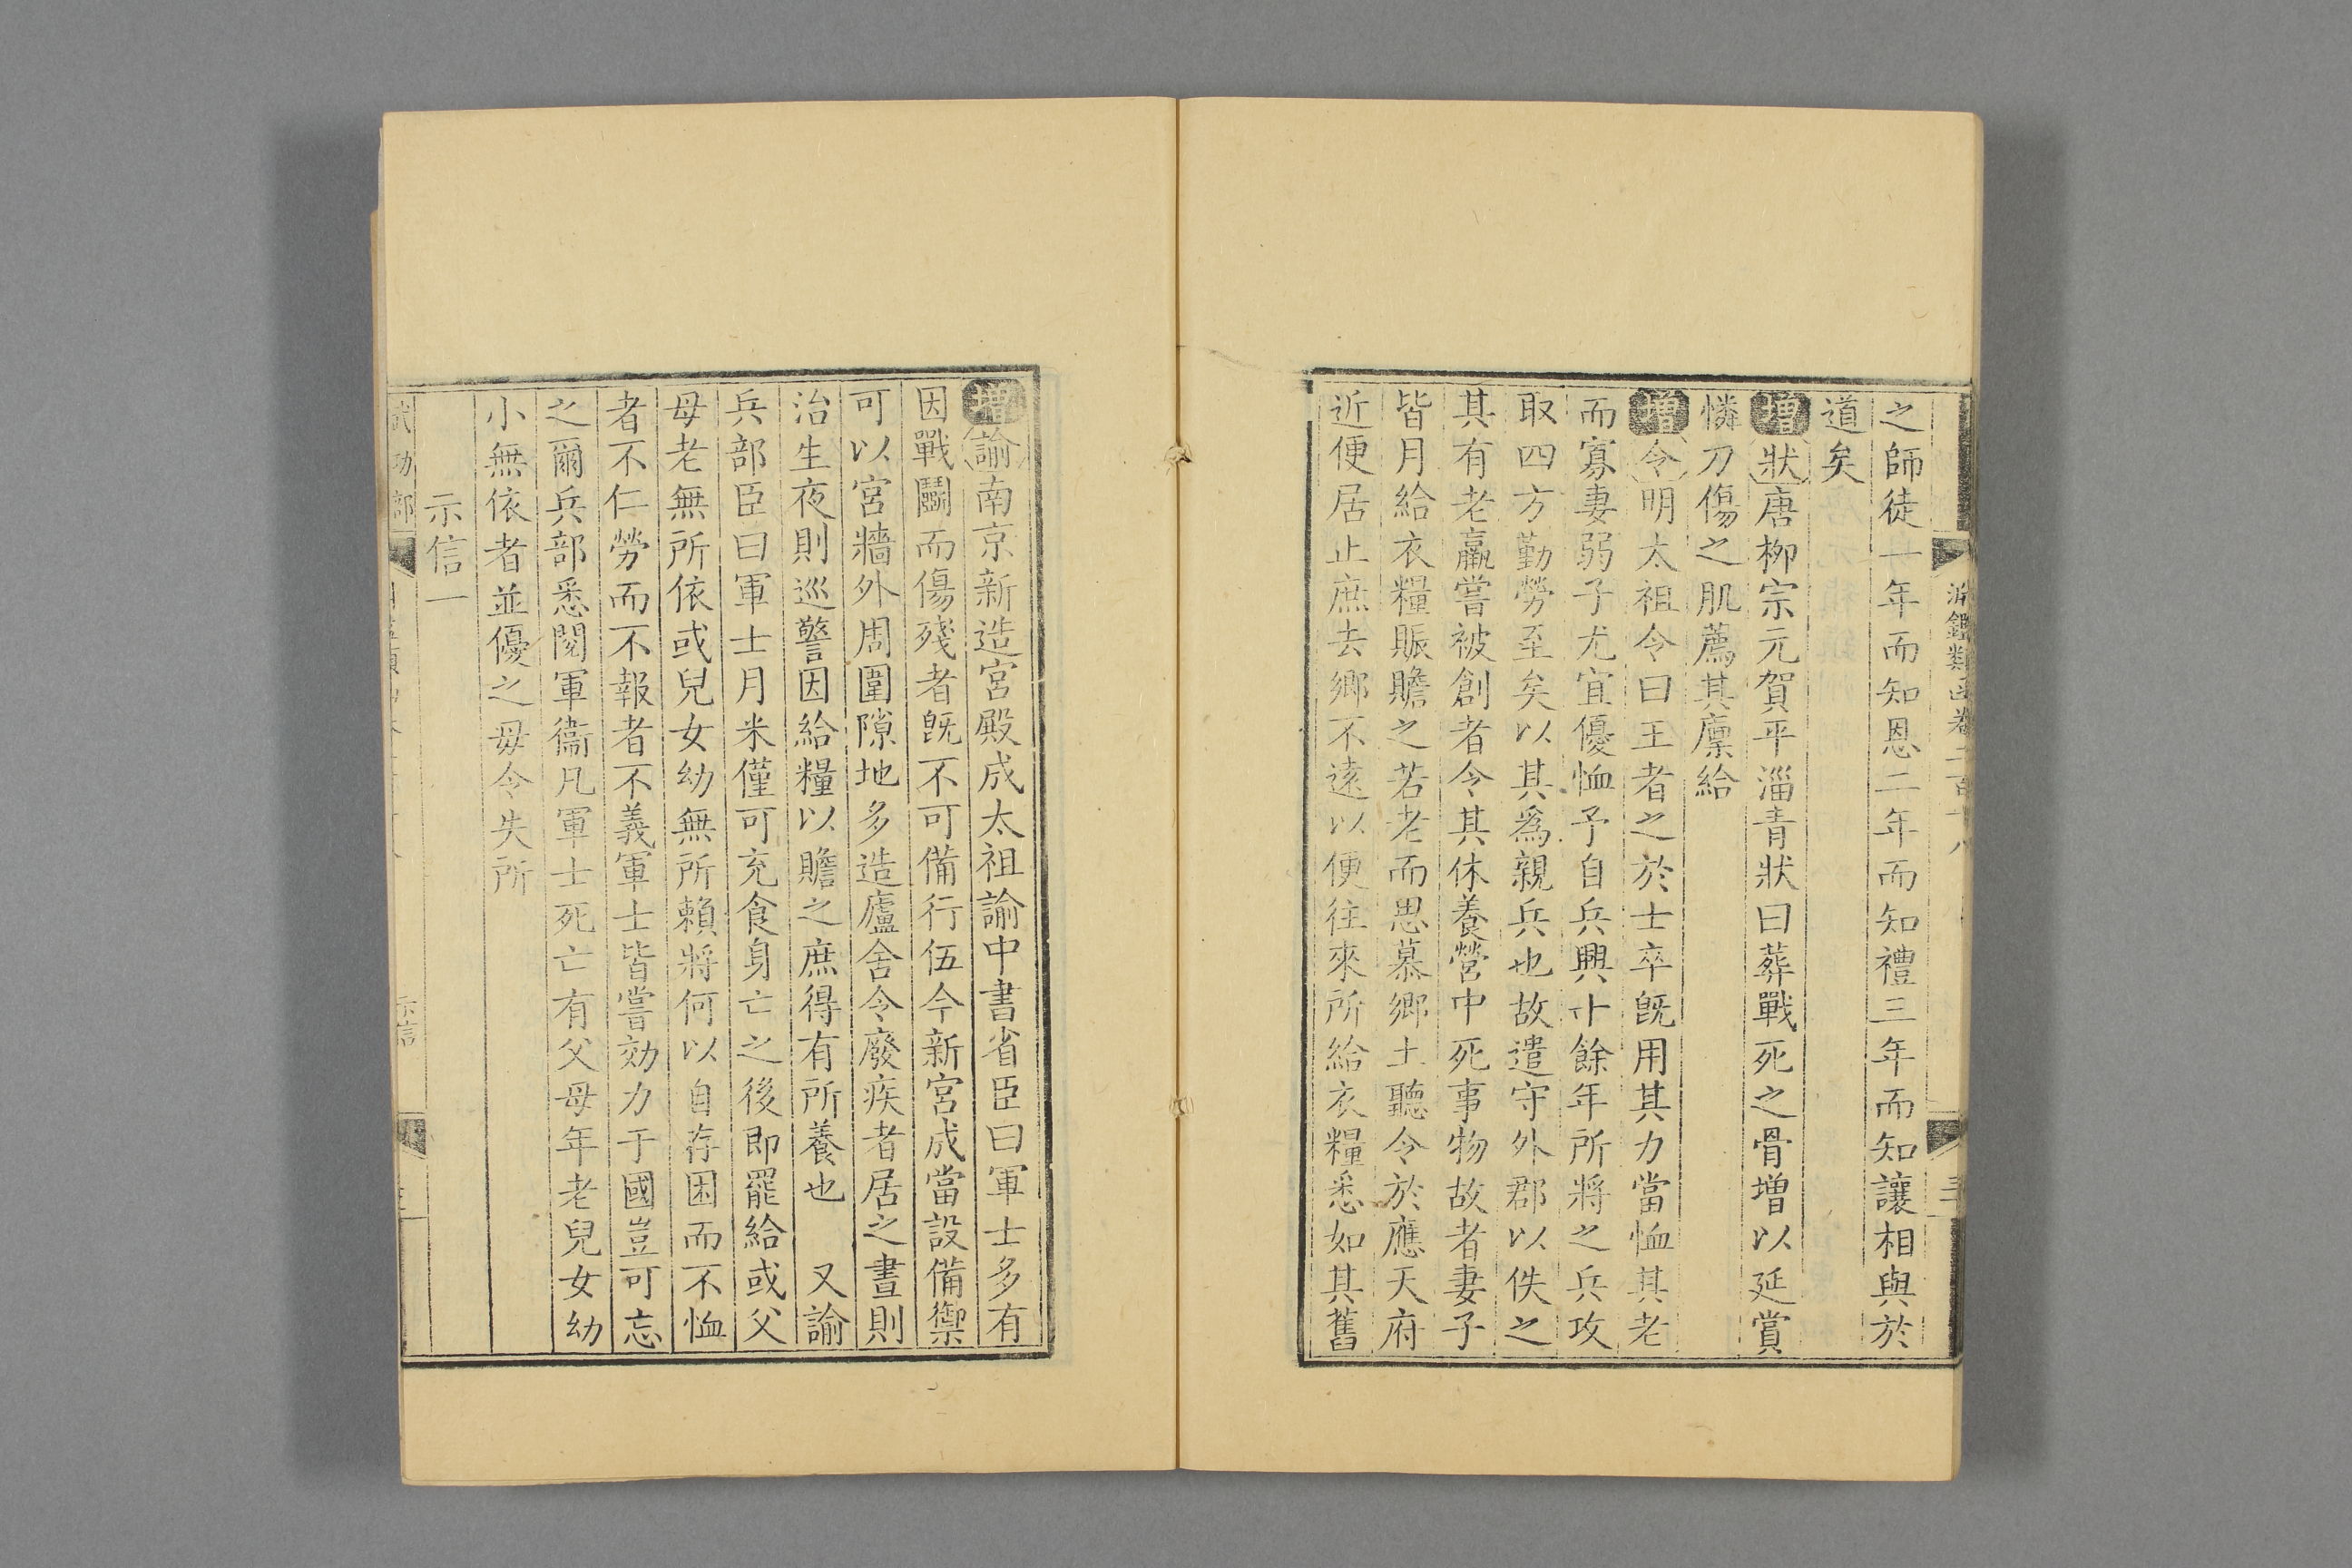 淵鑑類函卷二百十八
之師徒一年而知恩二年而知禮三年而知讓相與於
道矣
增狀唐柳宗元賀平淄青狀曰葬戰死之骨增以延賞
憐刀傷之肌薦其廩給
增令明太祖令曰王者之於士卒旣用其力當恤其老
而寡妻弱子尤宜優恤予自兵興十餘年所將之兵攻
取四方勤勞至矣以其爲親兵也故遣守外郡以佚之
其有老羸嘗被創者令其休養營中死事物故者妻子
皆月給衣糧賑贍之若老而思慕鄉土聽令於應天府
近便居止庶去鄉不遠以便往來所給衣糧悉如其舊
增諭南京新造宮殿成太祖諭中書省臣曰軍士多有
因戰鬭而傷殘者旣不可備行伍今新宮成當設備禦
可以宮牆外周圍隙地多造廬舍令廢疾者居之晝則
治生夜則巡警因給糧以贍之庶得有所養也　又諭
兵部臣曰軍士月米僅可充食身亡之後即罷給或父
母老無所依或兒女幼無所賴將何以自存困而不恤
者不仁勞而不報者不義軍士皆嘗効力于國豈可忘
之爾兵部悉閱軍衞凡軍士死亡有父母年老兒女幼
小無依者並優之毋令失所
示信一
武功部
示信